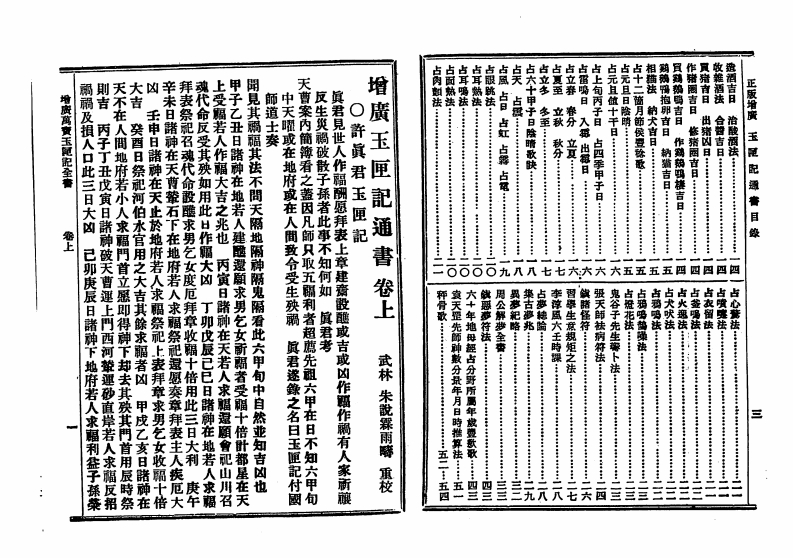 正版增廣 玉匣記通書目錄
造酒吉日 治酸酒法……一四
收雜酒法 合醬吉日……一四
買猪吉日 出猪凶日……一四
作猪圈吉日 修猪圈吉日……一四
買鷄鵝鴨吉日 作鷄鵝鴨棲吉日……一四
鷄鵝鴨抱卵吉日 納猫吉日……一四
相猫法 納犬吉日……一五
占十二箇月節候豊稔歌……一五
占元旦日陰晴……一五
占元旦值十干日……一六
占上旬丙子日 占四季甲子日……一六
占雷鳴日 入霧 出霧日……一六
占立春 春分 立夏……一六
占夏至 立秋 秋分……一七
占立冬 冬至……一七
占六十甲子日陰晴歌訣……一八
占天 占霞……一八
占風 占日 占虹 占霧 占電……一九
占眼跳法……二〇
占耳熱法……二〇
占耳鳴法……二〇
占面熱法……二〇
占肉顫法……二一
占心驚法……二一
占噴嚏法……二一
占衣留法……二一
占釜鳴法……二一
占火逸法……二一
占犬吠法……二二
占鵲噪法……二二
占燈花法……二三
鬼谷子先生響卜法……二三
張天師祛病符法……二四
鎮諸怪符……二六
習學生意規矩之法……二七
李淳風六壬時課……二八
占夢總論……二八
集古夢兆……二九
異夢紀略……三二
周公解夢全書……三三
鎮惡夢符法……四三
六十年地母經占分野所屬年歲豐歉歌……四三
袁天罡先師神數分景年月日時推算法……五一
秤骨歌……五二 五四
三
增廣玉匣記通書卷上
武林 朱說霖雨疇 重校
〇許眞君玉匣記
眞君見世人作福酬愿拜表上章建齋設醮或吉或凶作福作禍有人家祈禳
反生災禍破散子孫者此事不知何如 眞君考
天曹案內簡簿看之蓋因凡師只取五福利者超薦先祖六甲在日不知六甲旬
中天曜或在地府或在人間致令受生殃禍 眞君遂錄之名曰玉匣記付國
師道士奏
聞見其禍福其法不問天隔地隔神隔鬼隔看此六甲旬中自然並知吉凶也
甲子乙丑日諸神在地若人建醮還願求男乞女祈福者受福十倍計都星在天
上受福若人作福大吉之兆也 丙寅日諸神在天若人求福還願會祀山川召
魂代命反受其殃如用此日作福大凶 丁卯戊辰己巳日諸神在地若人求福
拜表祭祀召魂代命設醮求男乞女度厄拜章收福十倍用此三日大利 庚午
辛未日諸神在天曹輦石下在地府若人求福祭祀還愿奏章拜表主人疾厄大
凶 壬申日諸神在天止於地府若人求福祭祀上表拜章求男乞女收福十倍
大吉 癸酉日祭祀河伯水官用之大吉其餘求福者凶 甲戌乙亥日諸神在
天不在人間地府若小人求福門首立愿即得神下却去其殃其門首用辰時祭
則吉 丙子丁丑戊寅日諸神破天曹運上門西河輦運砂直岸若人求福反招
禍禍及損人口此三日大凶 己卯庚辰日諸神下地府若人求福利益子孫榮
增廣萬寶玉匣記全書
卷上
一